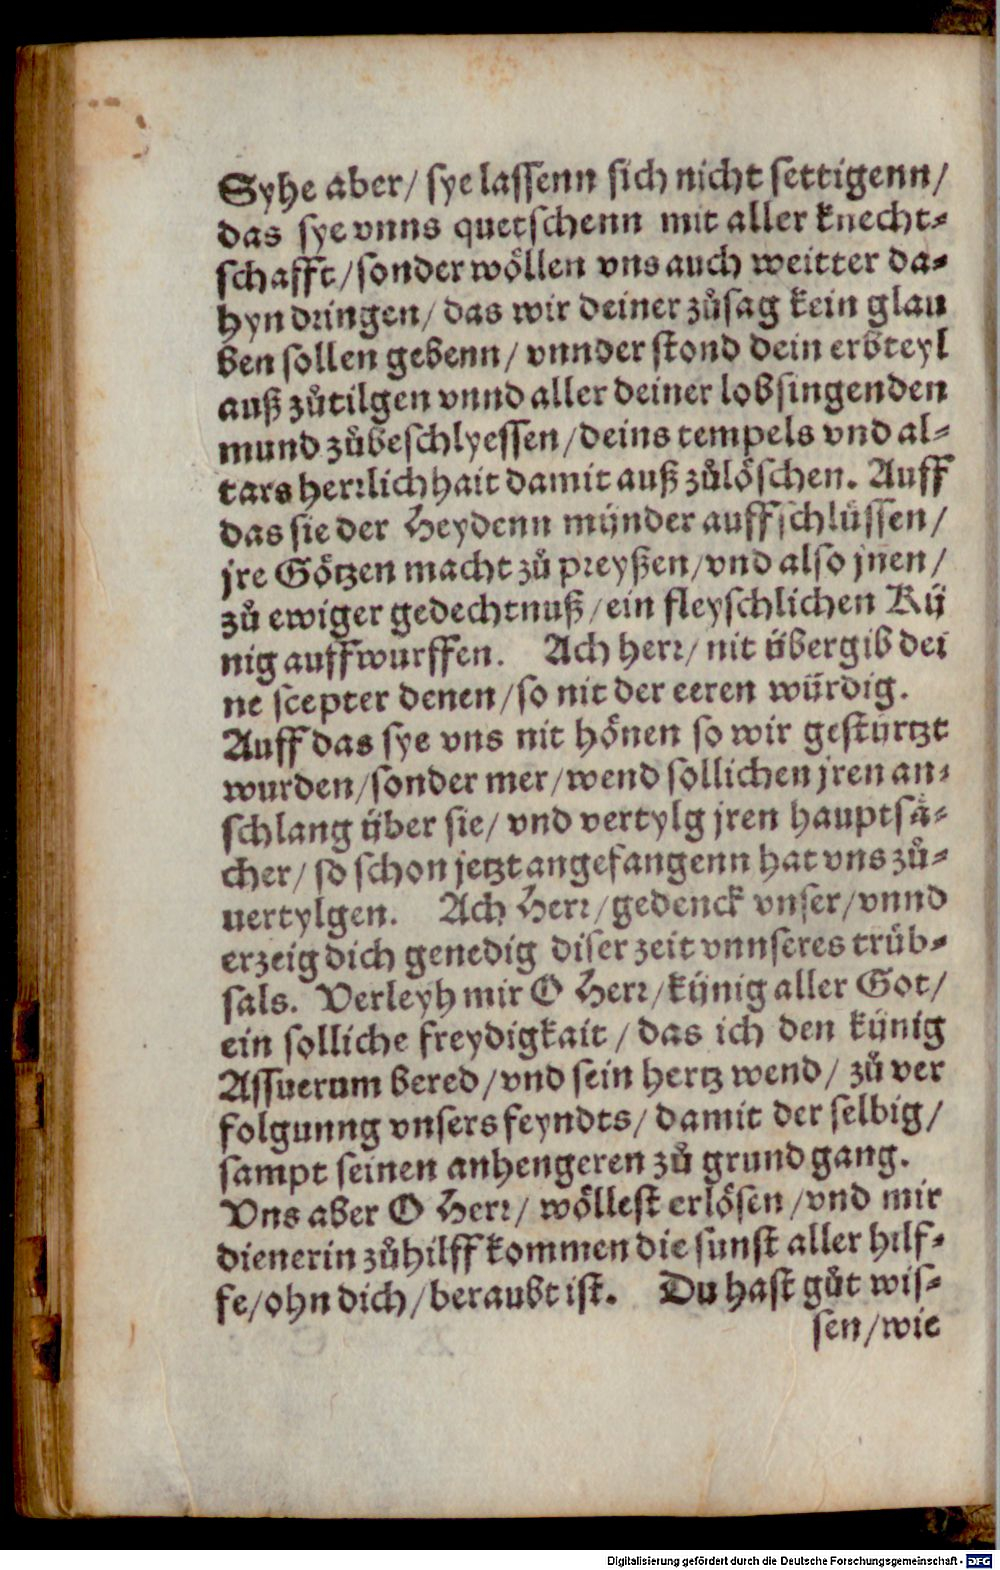 Syhe aber/ sye lassenn sich nicht settigenn/
das sye vnns quetschenn mit aller knecht⸗
schafft/sonder wöllen vns auch weitter da⸗
hyn dringen/ das wir deiner zůsag kein glau
ben sollen gebenn/ vnnder stond dein erbteyl
auß zůtilgen vnnd aller deiner lobsingenden
mund zůbeschlyessen/deins tempels vnd al⸗
tars herrlich hait damit auß zůlöschen. Auff
das sie der Heydenn münder auffschlüssen/
jre Götzen macht zů preyßen/vnd also jnen/
zů ewiger gedechtnuß/ein fleyschlichen Kü
nig auffwurffen. Ach herr/ nit übergib dei
ne scepter denen/so nit der eeren würdig.
Auff das sye vns nit hönen so wir gestürtzt
wurden/sonder mer/wend sollichen jren an⸗
schlang über sie/ vnd vertylg jren hauptsä⸗
cher/ so schon jetzt angefangenn hat vns zů⸗
uertylgen. Ach Herr/gedenck vnser/vnnd
erzeig dich genedig diser zeit vnnseres trüb⸗
sals. Verleyh mir O Herr/künig aller Got/
ein solliche freydigkait/ das ich den künig
Assuerum bered/vnd sein hertz wend/ zů ver
folgunng vnsers feyndts/ damit der selbig/
sampt seinen anhengeren zů grund gang.
Vns aber O Herr/ wöllest erlösen/vnd mir
dienerin zůhilff kommen die sunst aller hilf⸗
fe/ohn dich/beraubt ist. Du hast gůt wis⸗
sen/wie
Digitalisierung gefördert durch die Deutsche Forschungsgemeinschaft - DFG